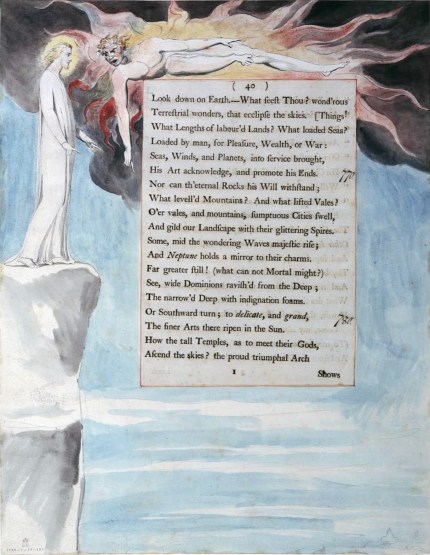 ( 40 )
Look down on Earth.—What seest Thou? wond'rous
Terrestrial wonders, that eclipse the skies. [Things!
What Lengths of labour'd Lands? What loaded Seas?
Loaded by man, for Pleasure, Wealth, or War:
Seas, Winds, and Planets, into service brought,
His Art acknowledge, and promote his Ends.
770
Nor can th'eternal Rocks his Will withstand;
What levell'd Mountains? And what lifted Vales?
O'er vales, and mountains, sumptuous Cities swell,
And gild our Landscape with their glittering Spires.
Some, mid the wondering Waves majestic rise;
And Neptune holds a mirror to their charms.
Far greater still! (what can not Mortal might?)
See, wide Dominions ravish'd from the Deep;
The narrow'd Deep with indignation foams.
Or Southward turn; to delicate, and grand,
780
The finer Arts there ripen in the Sun.
How the tall Temples, as to meet their Gods,
Ascend the skies? the proud triumphal Arch
1 Shows